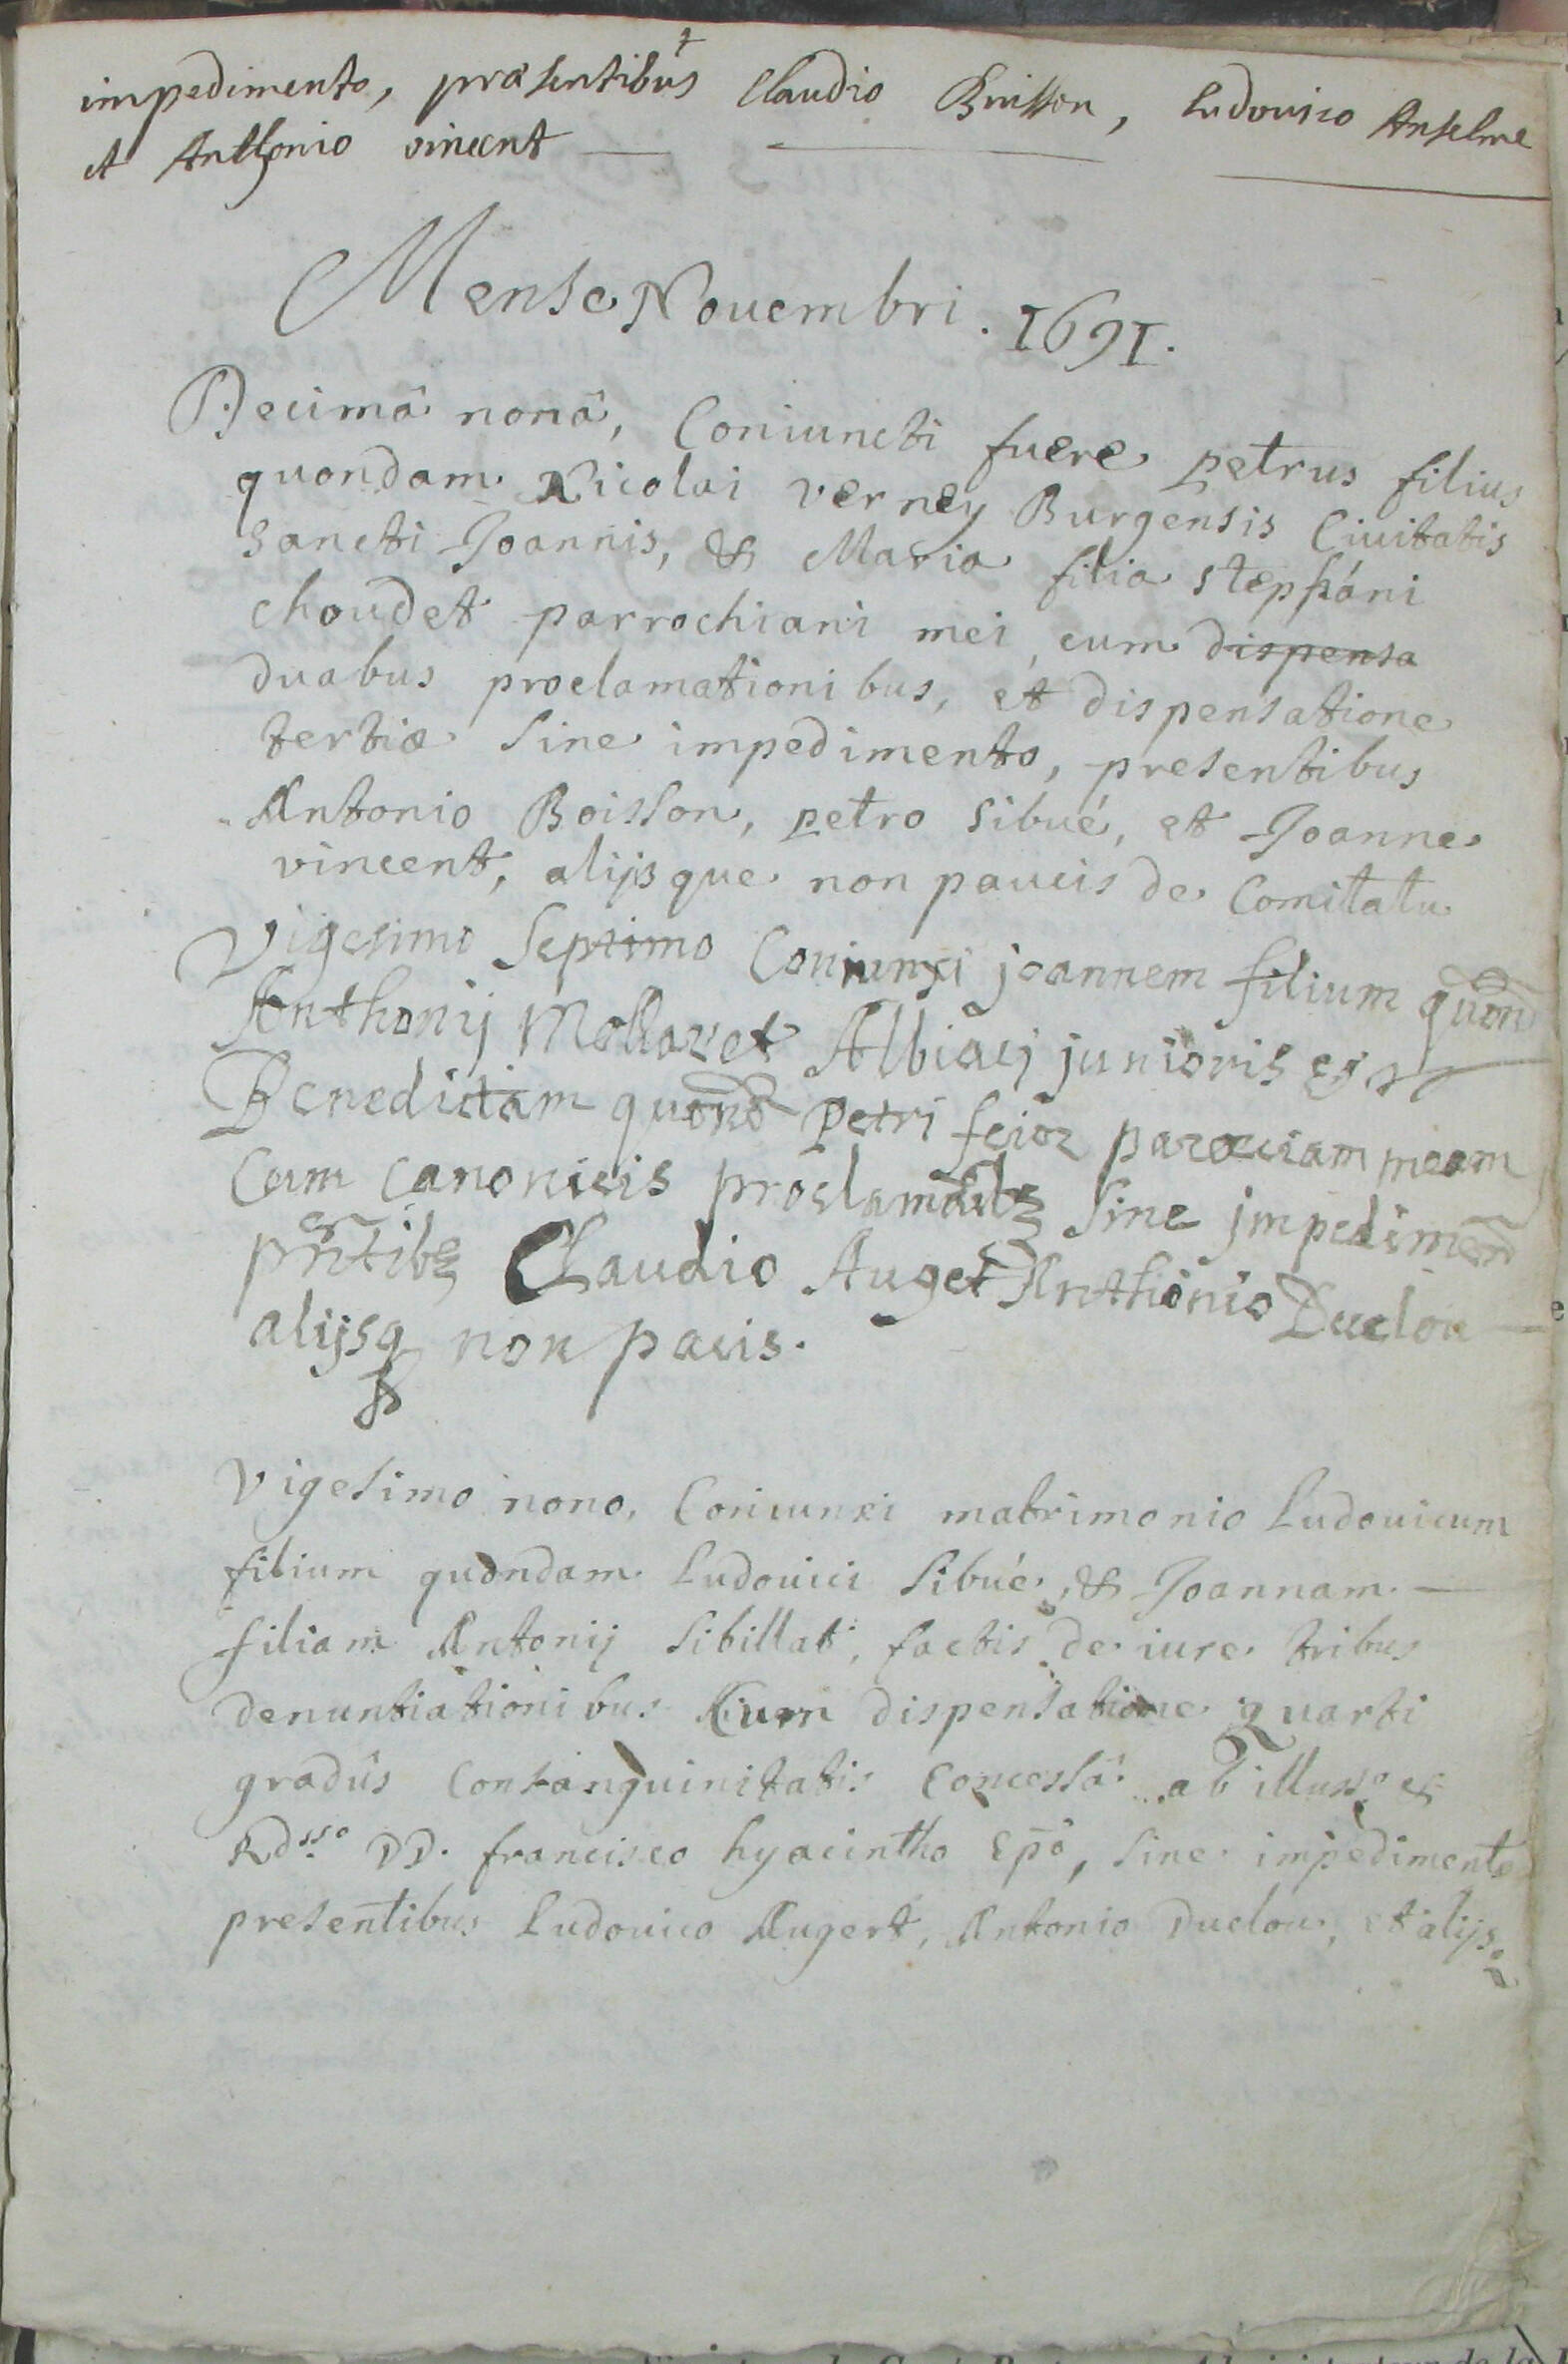 impedimento, præsentibus Claudio Buisson, Ludovico Anselme
et Anthonio vincent
Mense Nouembri. 1691.
Decimâ nonâ, Coniuncti fuere petrus filius
quondam Nicolai verney Burgensis Ciuitatis
Sancti Joannis, & Maria filia stephani
choudet parrochiani mei, cum dispensa
duabus proclamationibus, et dispensatione
tertiæ sine impedimento, presentibus
Antonio Boisson, petro Sibué, et Joanne
vincent, alijsque non paucis de Comitatu
Vigesimo septimo Coniunxi joannem filium quond
Anthonij Mollaret Albiacj junioris et
Benedictam quond Petri feior parociam meam
Cum canonicis proclamaõlz sine jmpedimen
pñtibz Claudio Auget Anthonio Duclou
alijsq non pacis.
Vigesimo nono, Coniunxi matrimonio Ludouicum
filium quondam Ludouici Sibué, & Joannam
filiam Antonij Sibillat, factis de iure tribus
denuntiationibus Cum dispensatione quarti
gradûs Consanguinitatis Concessâ ab illusso &
Rdsso DD. francisco hyacintho Epõ, sine impedimento
presentibus Ludouico Augert, Antonio Duclou, et alijs.